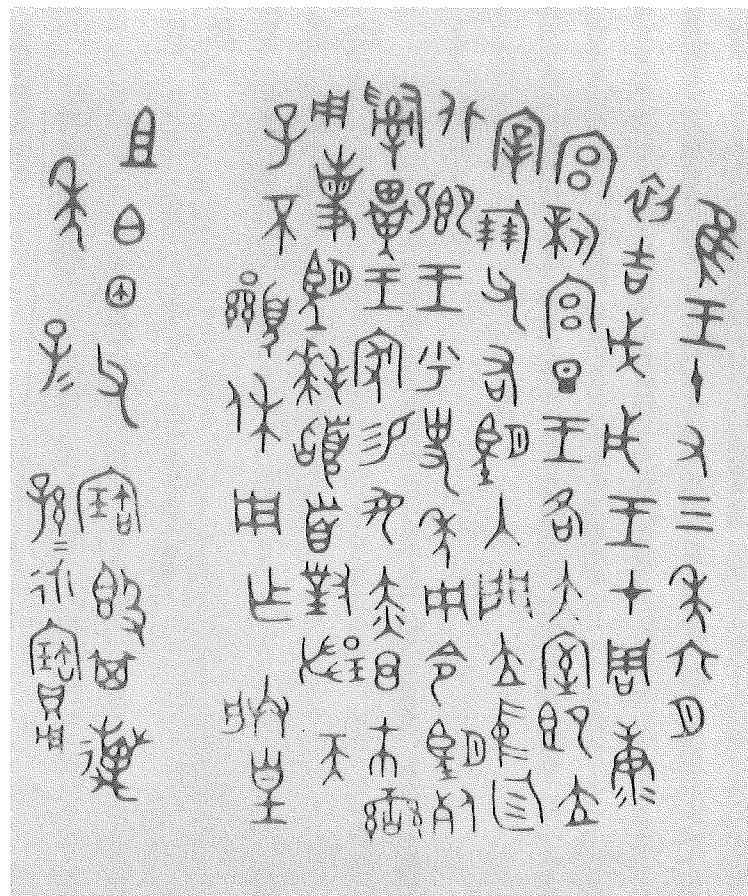 隹王十又三年六月
初吉戊戌王才周康
宮新宮旦王各大室即立
宰倗父右望入門立中廷
北卿王乎史年冊令望死
𤔲畢王家易女赤市䜌
用事望拜𩒨首對揚天
子不顯休用乍朕皇
且白囧父寶𣪘其萬
年子=孫=永寶用